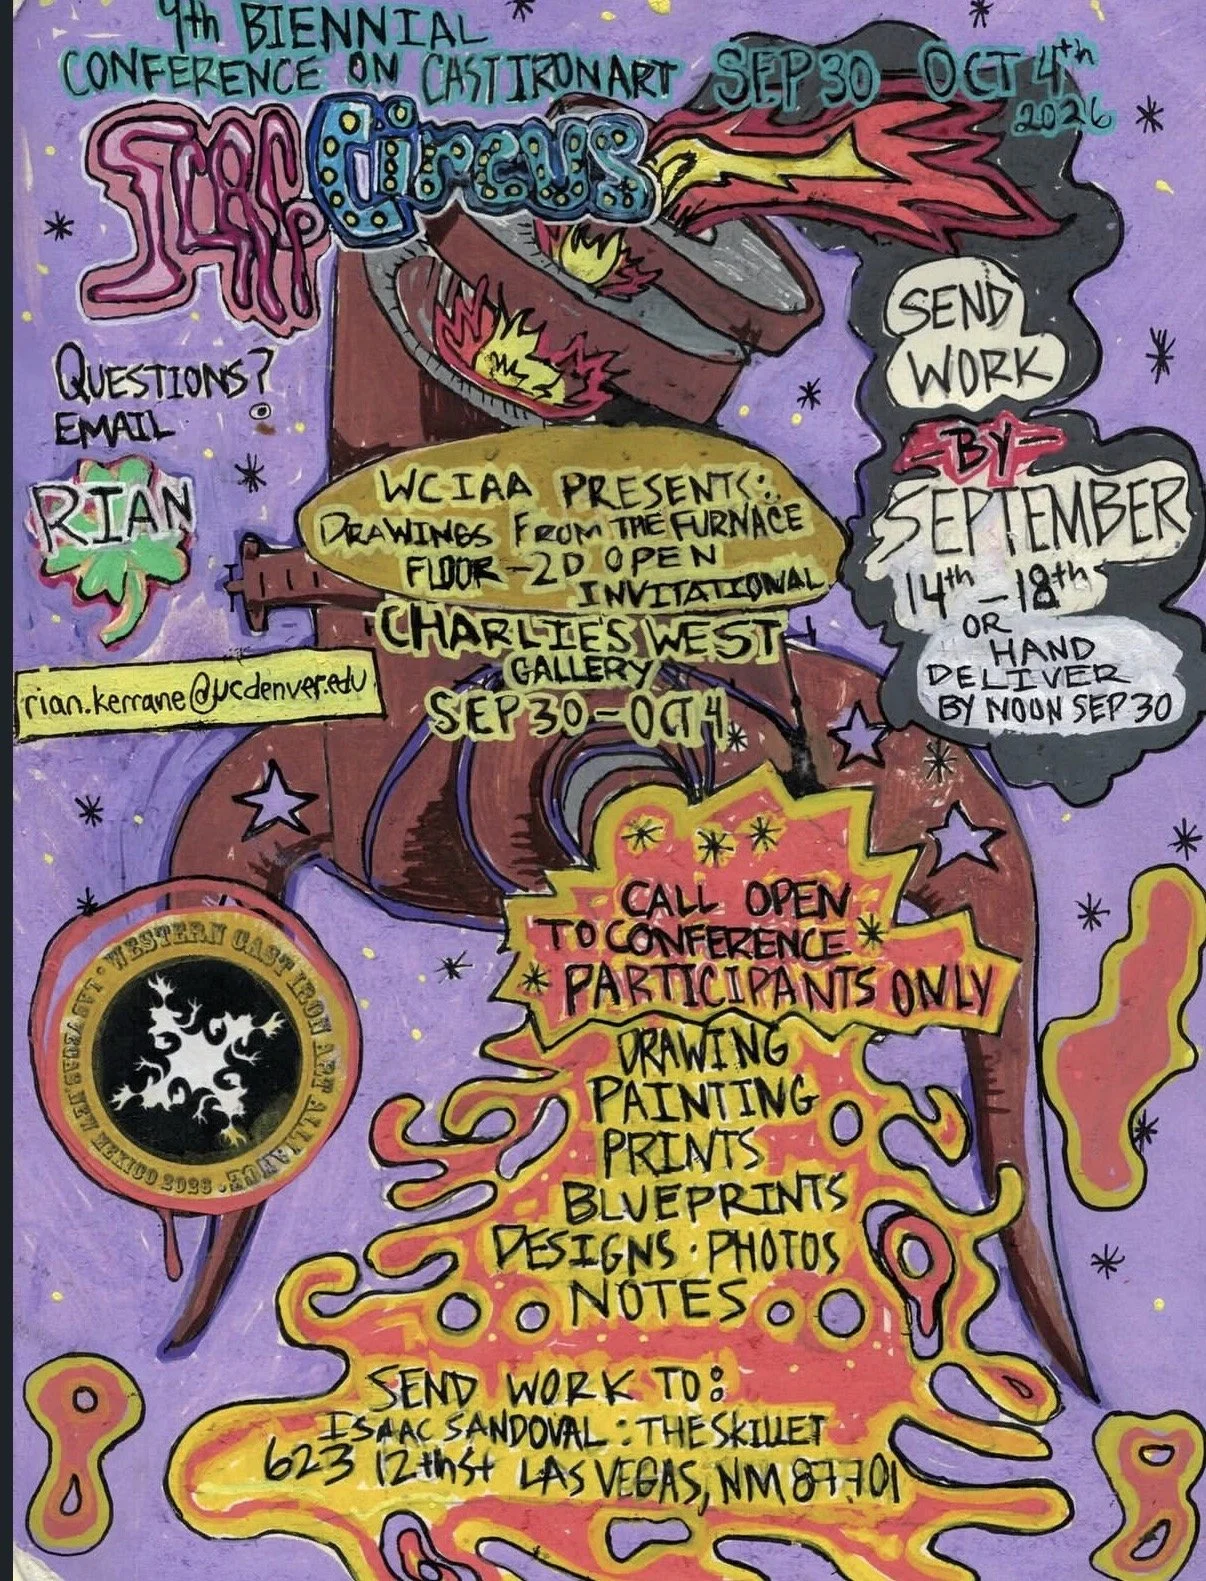 9th BIENNIAL
CONFERENCE ON CAST IRON ART
SEP 30 - OCT 4th
2026
SCRAP CIRCUS
QUESTIONS?
EMAIL
RIAN
rian.kerrane@ucdenver.edu
SEND
WORK
-BY-
SEPTEMBER
14th - 18th
OR
HAND
DELIVER
BY NOON SEP 30
WCIAA PRESENTS:
DRAWINGS FROM THE FURNACE
FLOOR - 2D OPEN
INVITATIONAL
CHARLIE'S WEST
GALLERY
SEP 30 - OCT 4
CALL OPEN
TO CONFERENCE
PARTICIPANTS ONLY
DRAWING
PAINTING
PRINTS
BLUEPRINTS
DESIGNS · PHOTOS
NOTES
WESTERN CAST IRON ART ALLIANCE · LAS VEGAS NEW MEXICO 2026 ·
SEND WORK TO:
ISAAC SANDOVAL : THE SKILLET
623 12th St LAS VEGAS, NM 87701